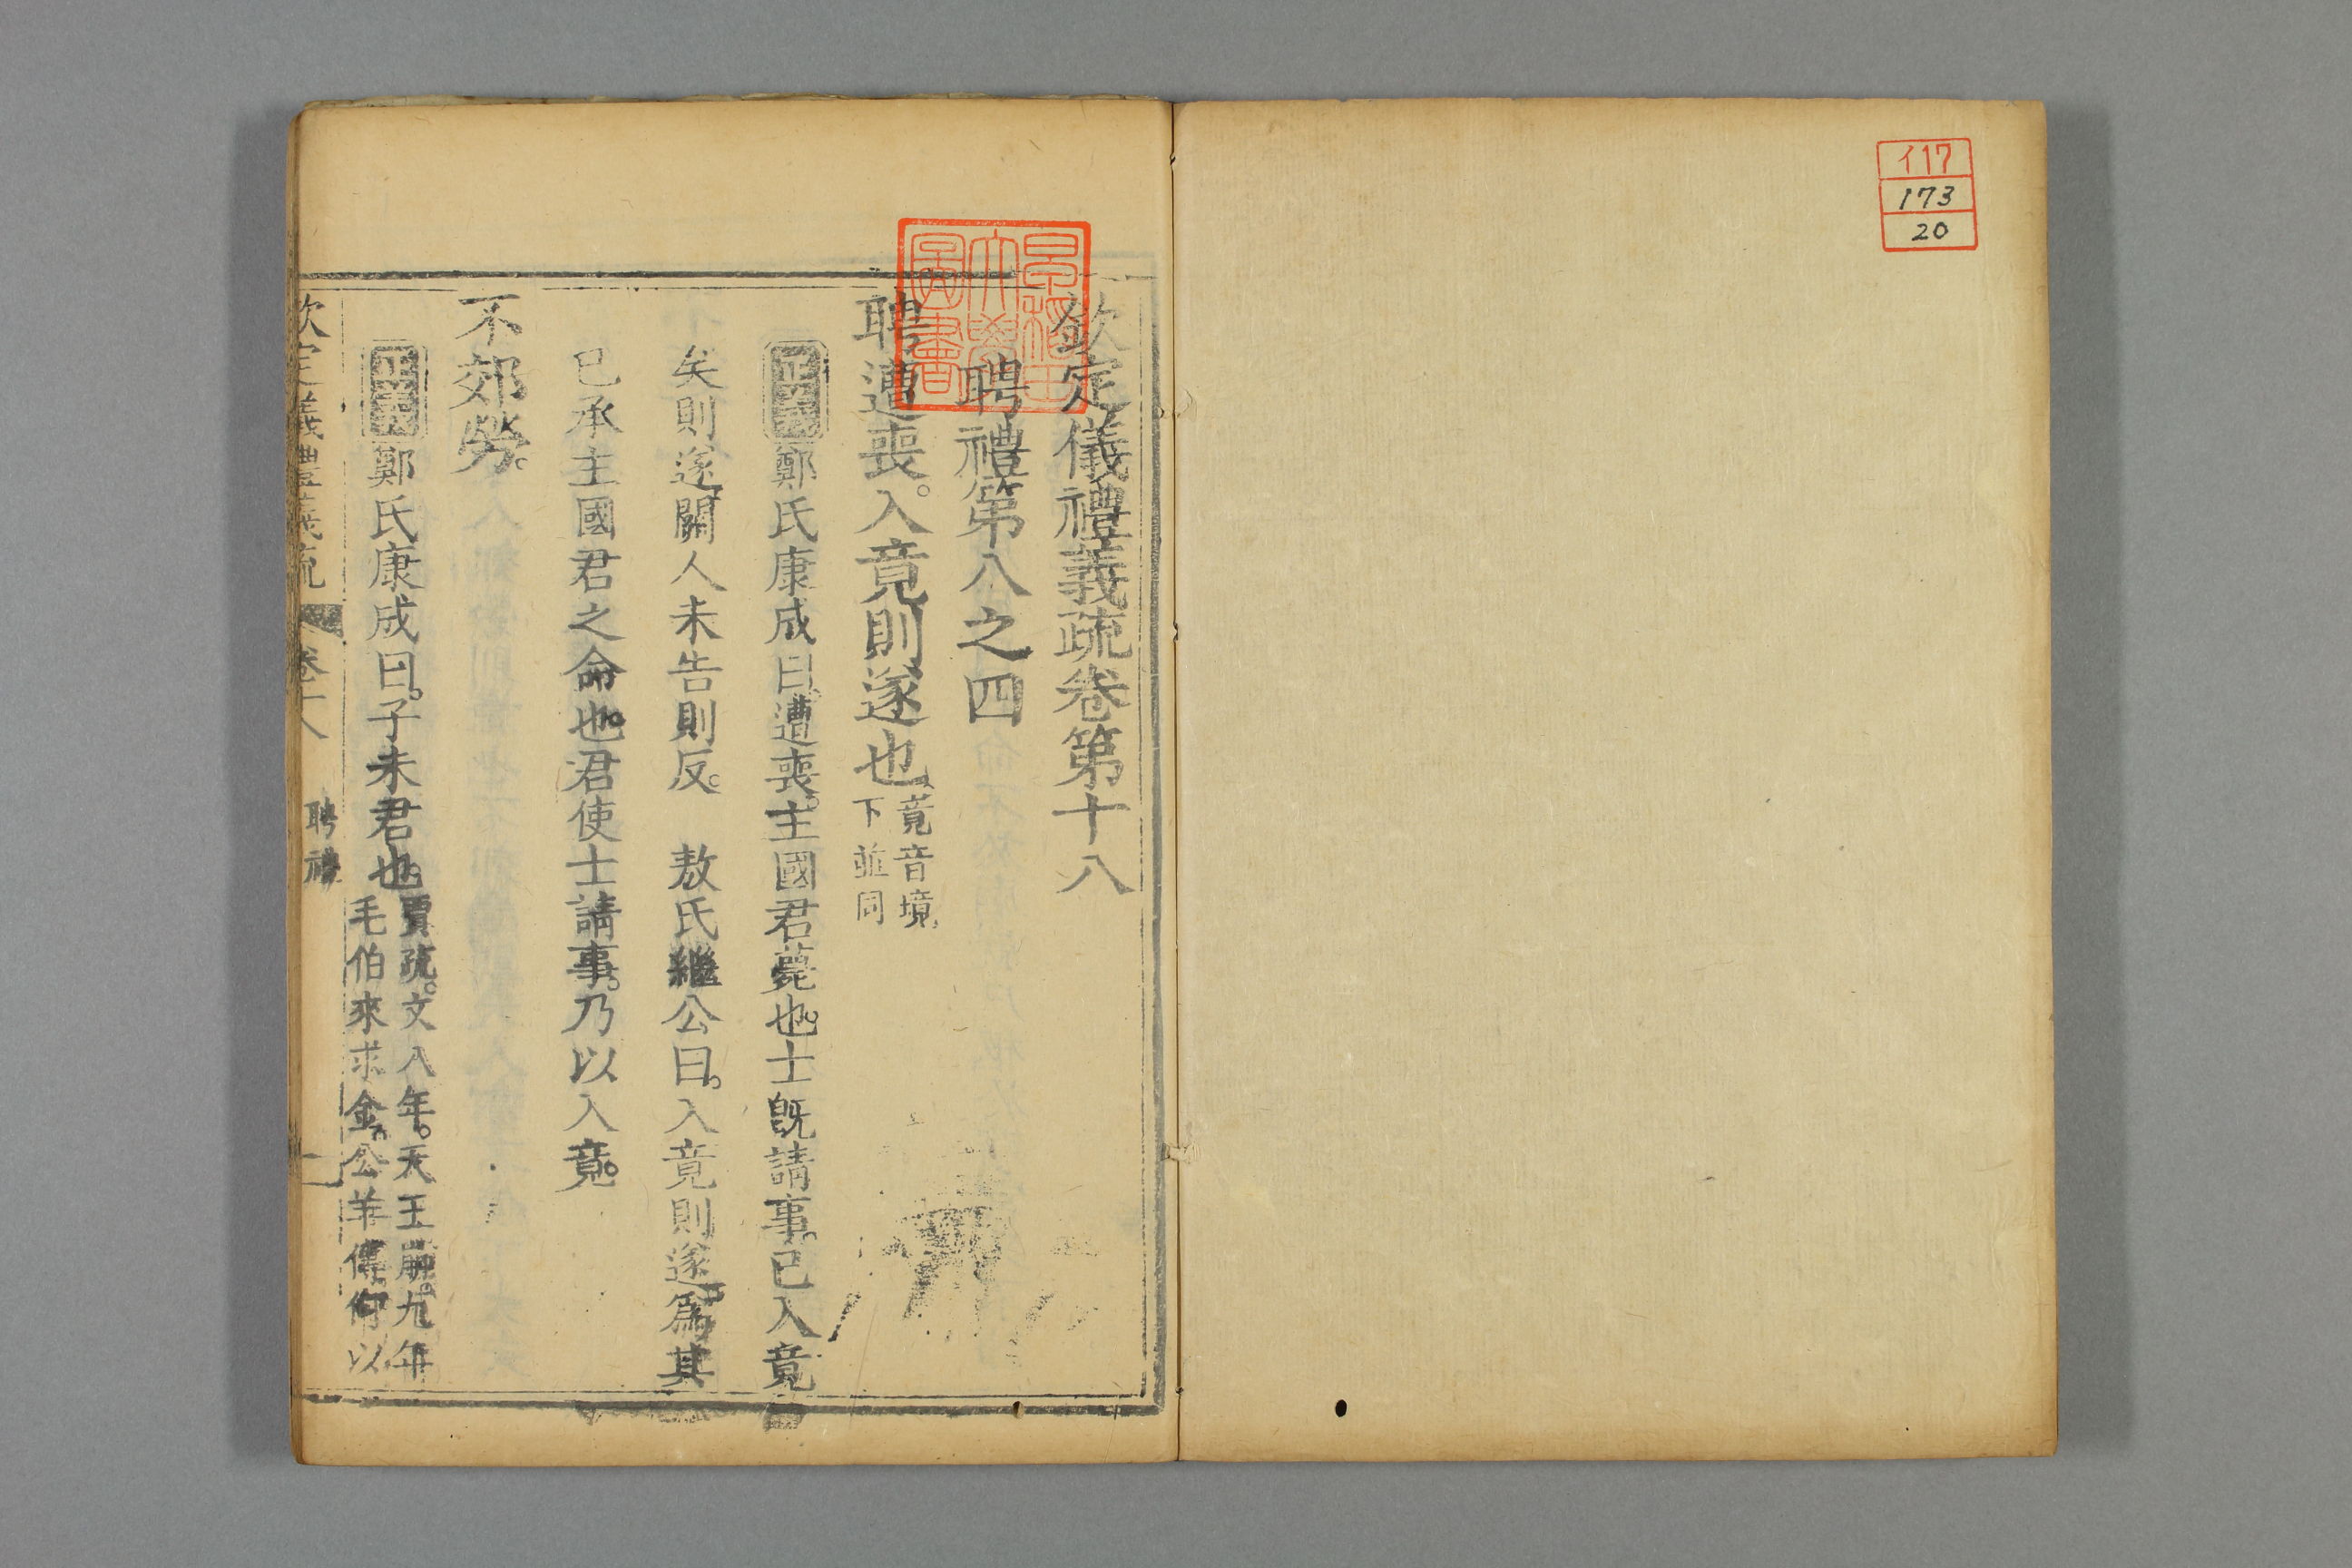 イ17
173
20
早稲田大學圖書
欽定儀禮義疏卷第十八
聘禮第八之四
聘遭喪。入竟則遂也。竟音境下並同
正義鄭氏康成曰。遭喪。主國君薨也。士旣請事。已入竟
矣則遂。關人未告則反。 敖氏繼公曰。入竟則遂。爲其
已承主國君之命也。君使士請事。乃以入竟。
不郊勞。
正義鄭氏康成曰。子未君也。賈疏。文八年。天王崩。九年毛伯來求金。公羊傳何以
欽定儀禮義疏 卷十八 聘禮 一